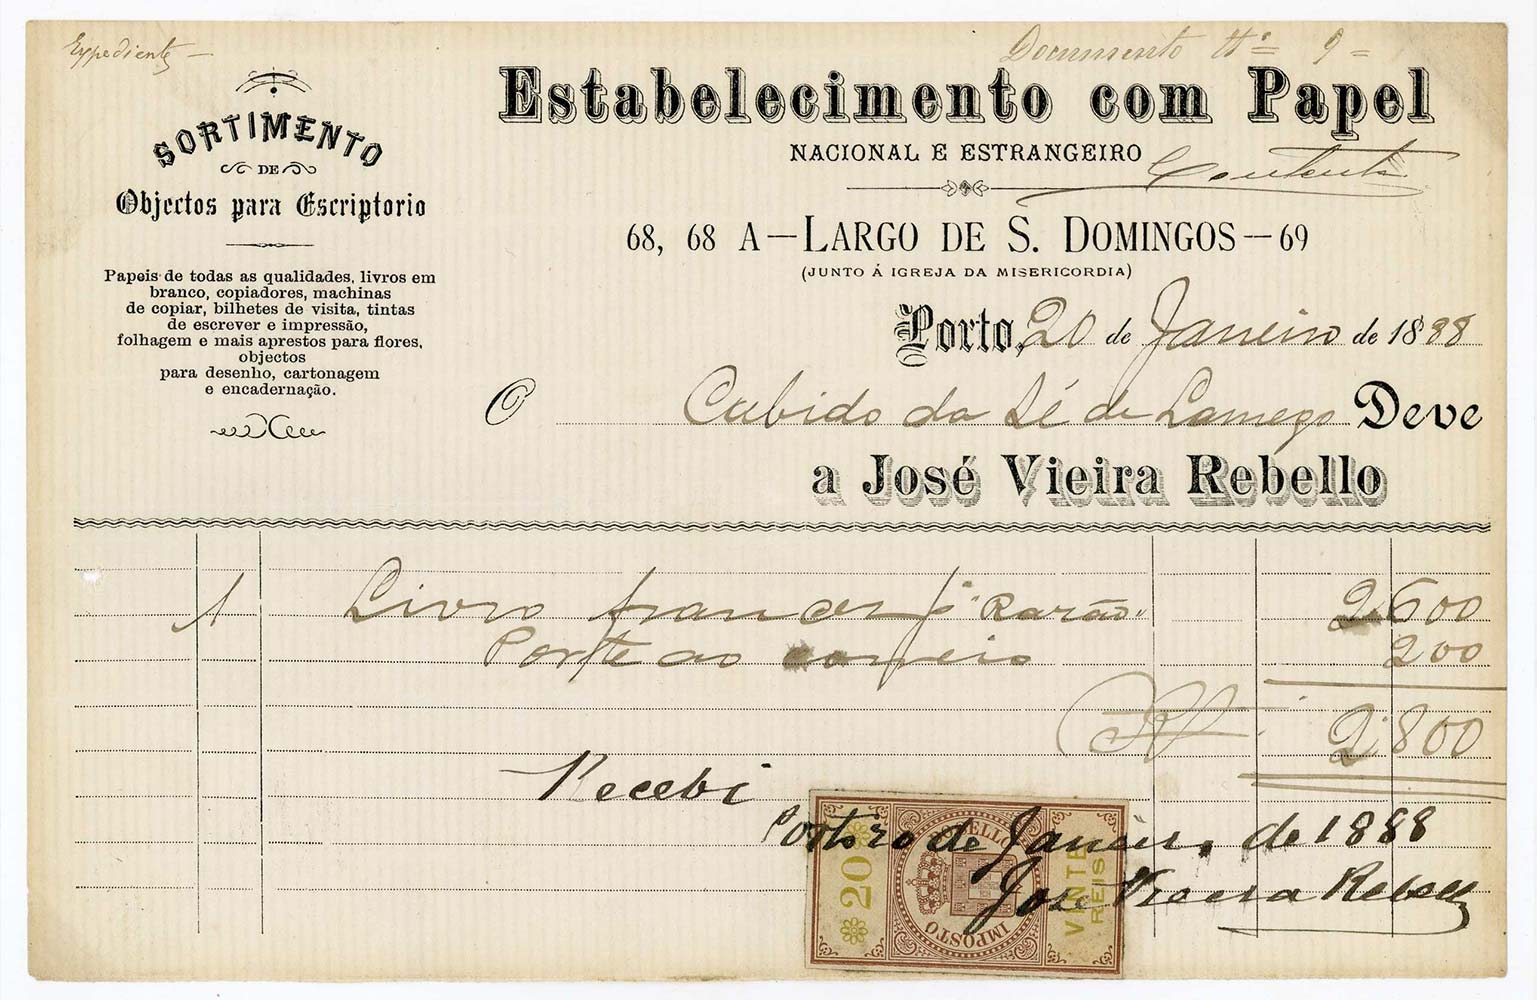 Expediente —
Documento Nº 9 =
SORTIMENTO
DE
Objectos para Escriptorio
Papeis de todas as qualidades, livros em
branco, copiadores, machinas
de copiar, bilhetes de visita, tintas
de escrever e impressão,
folhagem e mais aprestos para flores,
objectos
para desenho, cartonagem
e encadernação.
Estabelecimento com Papel
NACIONAL E ESTRANGEIRO
68, 68 A — LARGO DE S. DOMINGOS — 69
(JUNTO Á IGREJA DA MISERICORDIA)
Porto, 20 de Janeiro de 1888
O Cabido da Sé de Lamego Deve
a José Vieira Rebello
1 Livro francez pª "Razão" 2.600
Porte ao correio 200
2.800
Recebi
Porto 20 de Janeiro de 1888
José Vieira Rebello
20
SELLO
IMPOSTO
VINTE
REIS